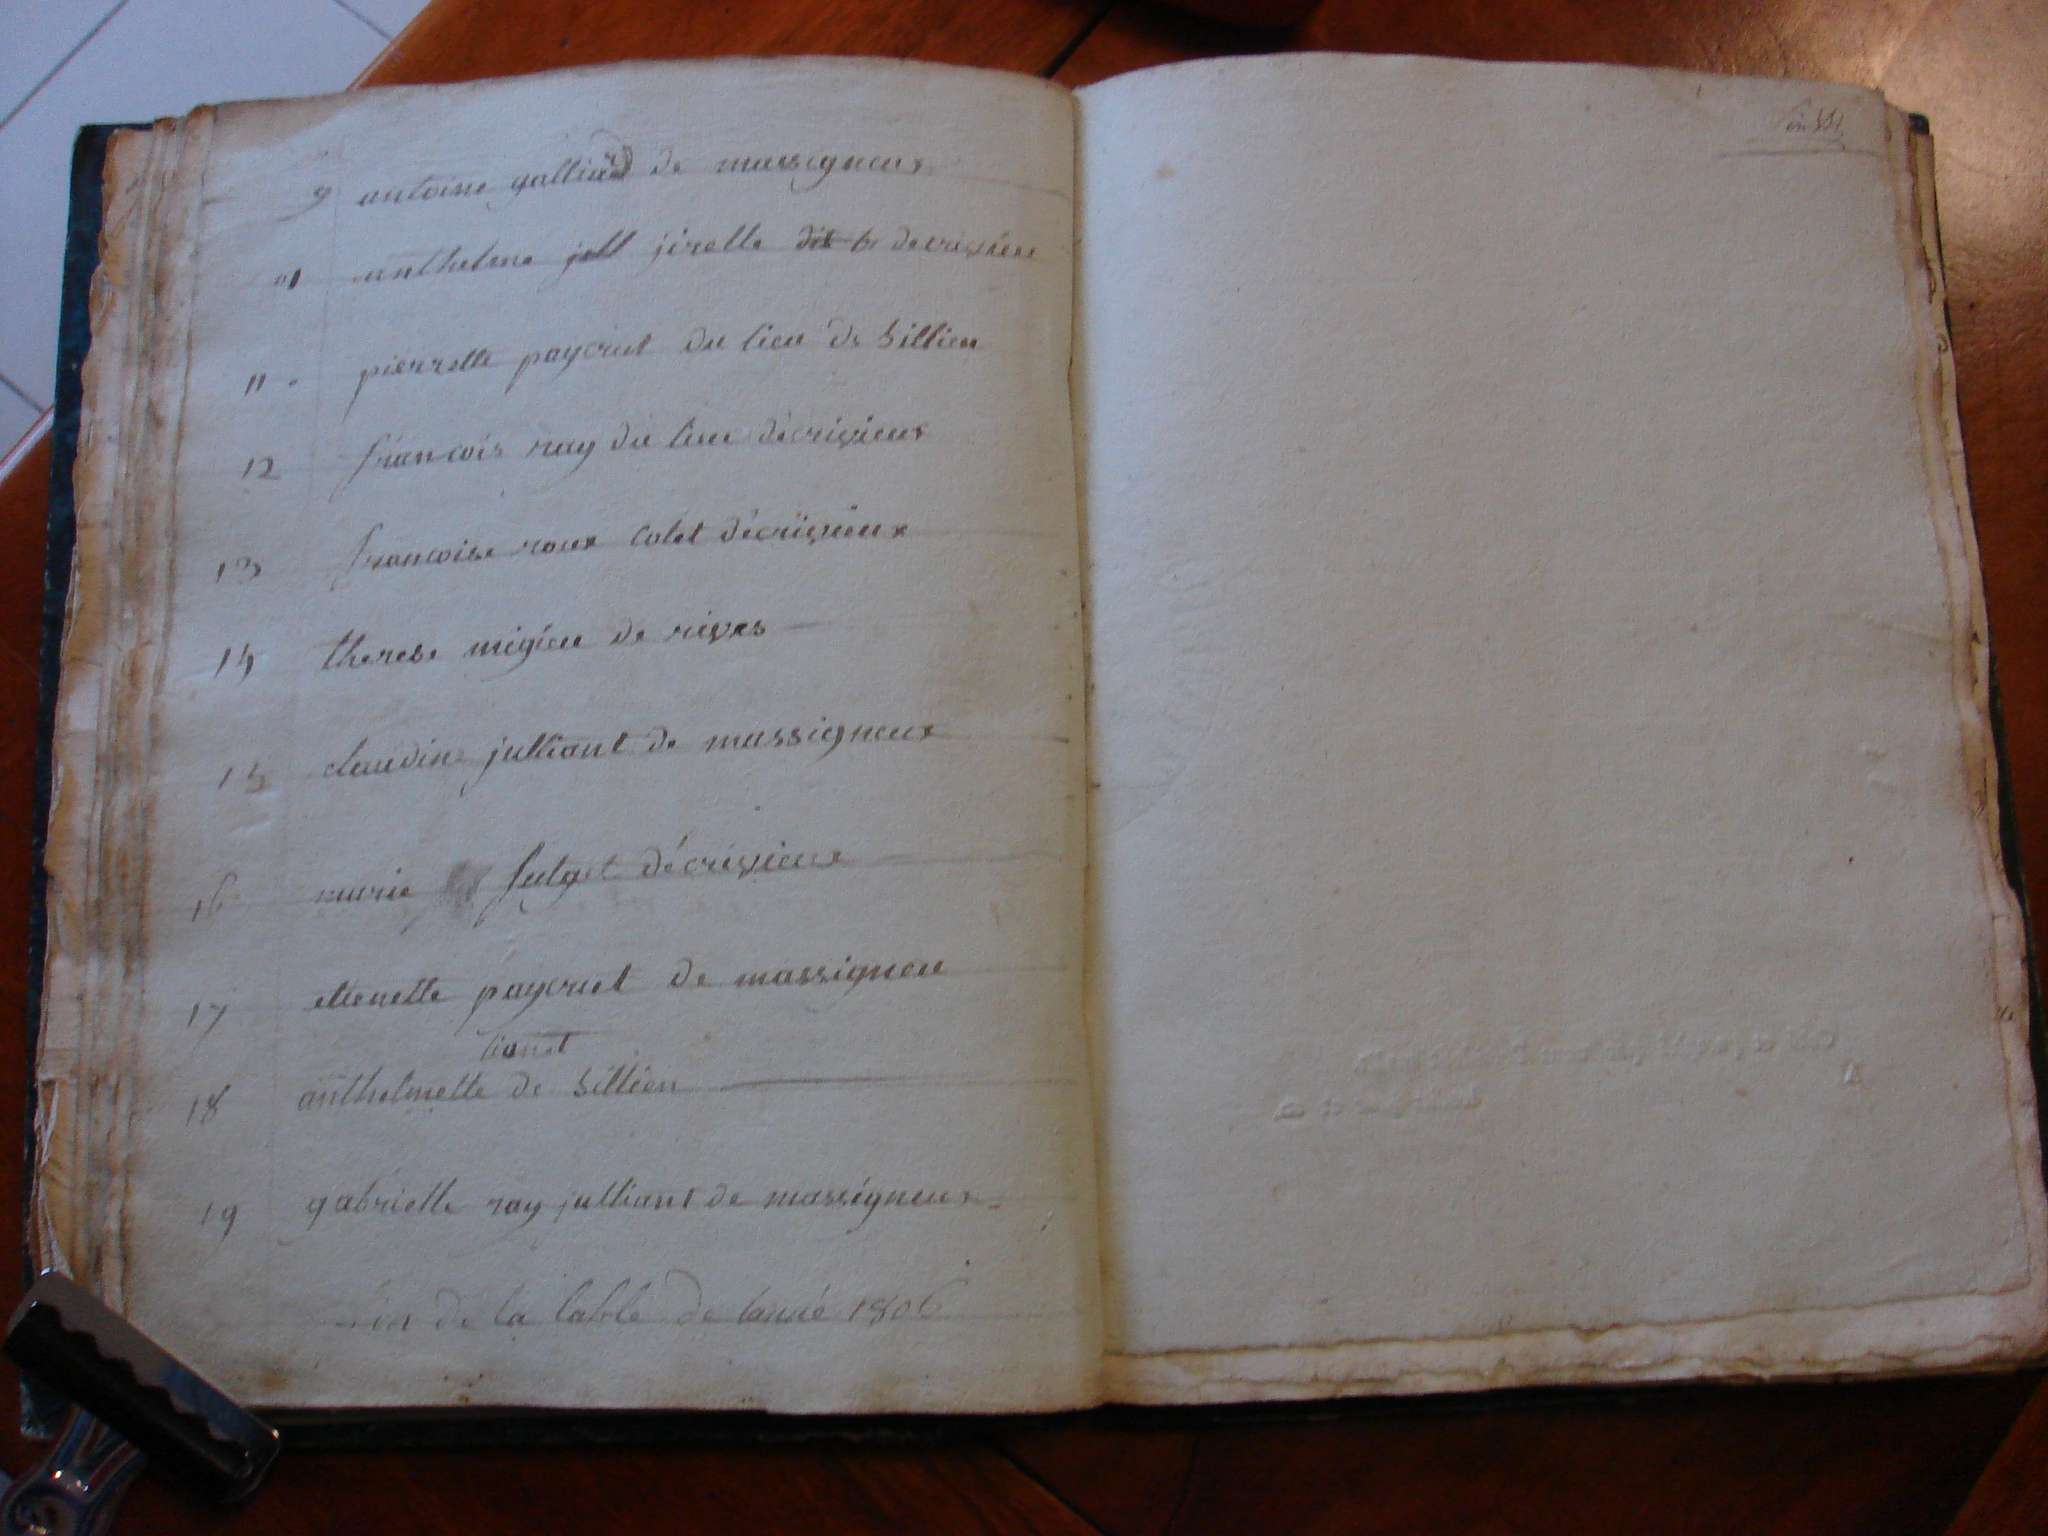 9 antoine galliad de massigneux
anthelme jirelle dit decrisieux
11. pierrette paycrut du lieu de sillieu
12 francois ray du lieu décrisieux
13 francoise roux colet décrisieux
14 therese migieu de rives
15 claudine julliant de massigneux
16 marie décrisieux
17 etienette paycrut de massigneu
18 anthelmette de sillien
19 gabrielle ray julliant de massigneux
fin de la table de lanné 1806